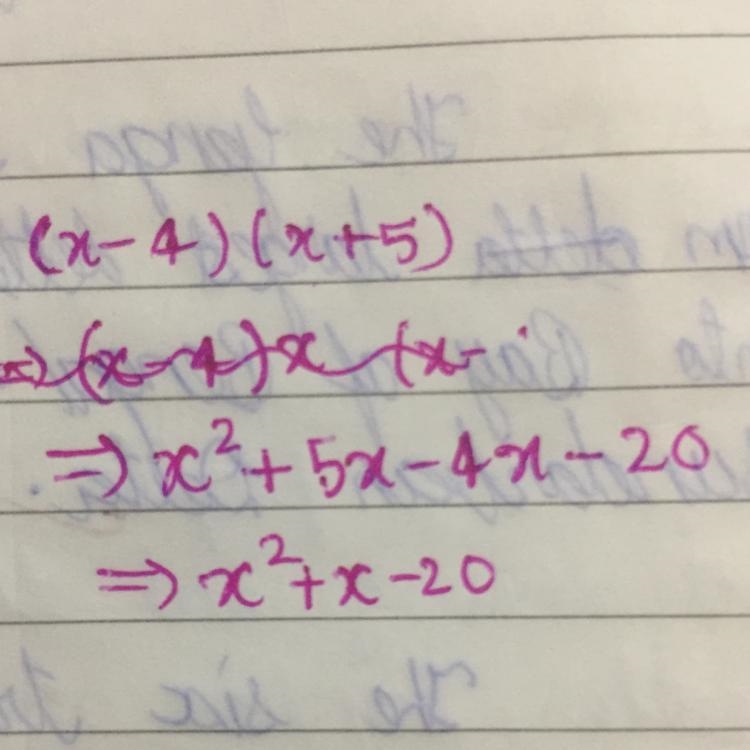 (x-4)(x+5)
⇒ x²+5x-4x-20
⇒ x²+x-20